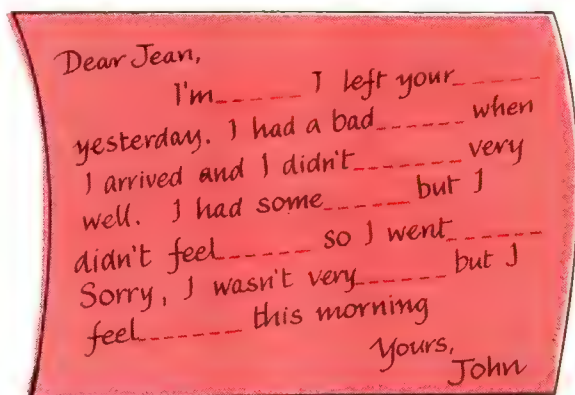 Dear Jean,
I'm______ I left your______
yesterday. I had a bad______ when
I arrived and I didn't_______ very
well. I had some______ but I
didn't feel______ so I went______
Sorry, I wasn't very______ but I
feel_______ this morning
Yours,
John